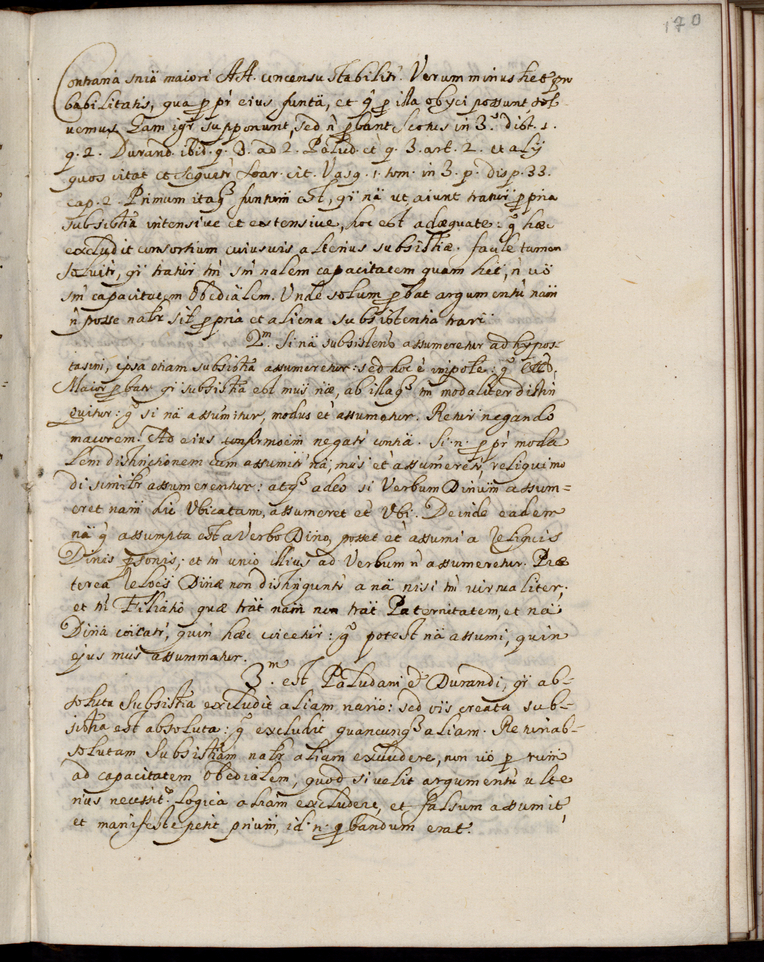 170
Contraria snīa maiori AA. concensu stabilitr. Verum minus het pro
babilitatis, qua p pr̄ eius funtā, et q̄ p illa obyci possunt sol-
vemus. Eam igr̄ supponunt, sed n̄ p̱bant Scotus in 3. dist. 1.
q. 2. Durand. ibid. q. 3. ad 2. Palud. et q. 3. art. 2. et alÿ
quos citat et sequitr Soar. cit. Vasq. 1. tom. in 3. p. disp. 33.
cap. 2. Primum itaq̄ funtūm est, qī nā ut aiunt tratur p̱pria
subsistīa intensive et extensive, hoc est adæquate: q̄ hæc
excludit consortium cuiusvis alterius subsistīæ. facile tamen
solvitr, qī tratur tm̄ sm̄ nalem capacitatem quam het, n̄ vō
sm̄ capacitatem obedīalem. Unde solum p̱bat argumentū nām
n̄ posse nalr̄ sil̄ p̱pria et aliena subsistentia trari.
2.m Si nā subsistens assumeretur ad hypos-
tasim, ipsa etiam subsistīa assumeretur: sed hoc ē impoſſe: q̄ et id.
Maior p̱batr qī subsistīa est mus̄ næ, ab illaq̄ tm̄ modaliter distin
guitur: q̄ si nā assumitur, modus et̄ assumetur. Retur negando
maiorem. Ad eius confirmoēm negatr contīa. Si .n. p̱ pr̄ moda
lem distinctionem cum assumitr nā, mus̄ et̄ assumeretr, reliqui mo
di similr̄ assumerentur: atq̄ adeo si Verbum Divinum assum=
eret nām hic Ubicatam, assumeret et̄ Ubi. Deinde eadem
nā q̄ assumpta est a Verbo Dīno, posset et̄ assumi a reliquis
Dīnis p̱sonis, et tm̄ unio illius ad Verbum n̄ assumeretur. Præ
terea Reloēs Dīnæ non distinguntr a nā nisi tm̄ virtualiter;
et tn̄ Filiātiō, quæ trāt nām non trāt Paternitatem, et nā
Dīna coīcatr, quin hæc coicetur: q̄ potest nā assumi, quin
ejus mus̄ assummatur.
3.m est Paludani et Durandi, qī ab-
soluta subsistīa excludit aliam nario: sed vis creata sub-
sistīa est absoluta: q̄ excludit quancunq̄ aliam. Retur ab-
solutam subsistīam nalr̄ aliam excludere, non vō p̱ rum
ad capacitatem obedīalem, quod si velit argumentū ulte
rius necessit̄ Logica aliam excludere, et falsum assumit,
et manifeste petit prium, id .n. p̱bandum erat.